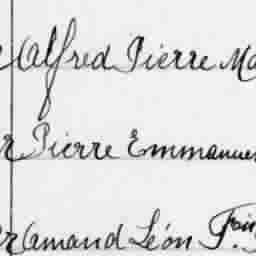 Alfred Pierre Ma
r Pierre Emmanuel
r Amand Léon F.